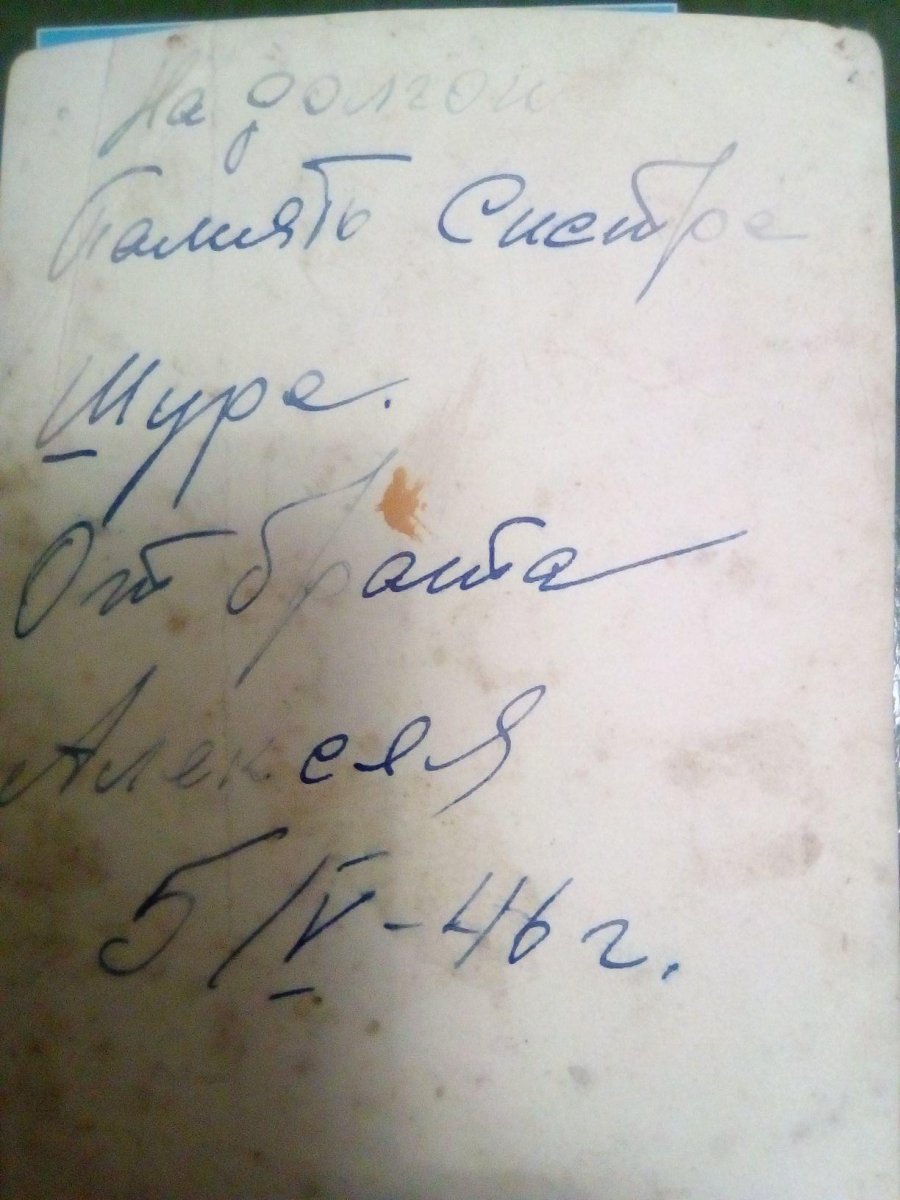 На долгою
Память Систре
Шуре.
От брата
Алексея
5/V-46 г.